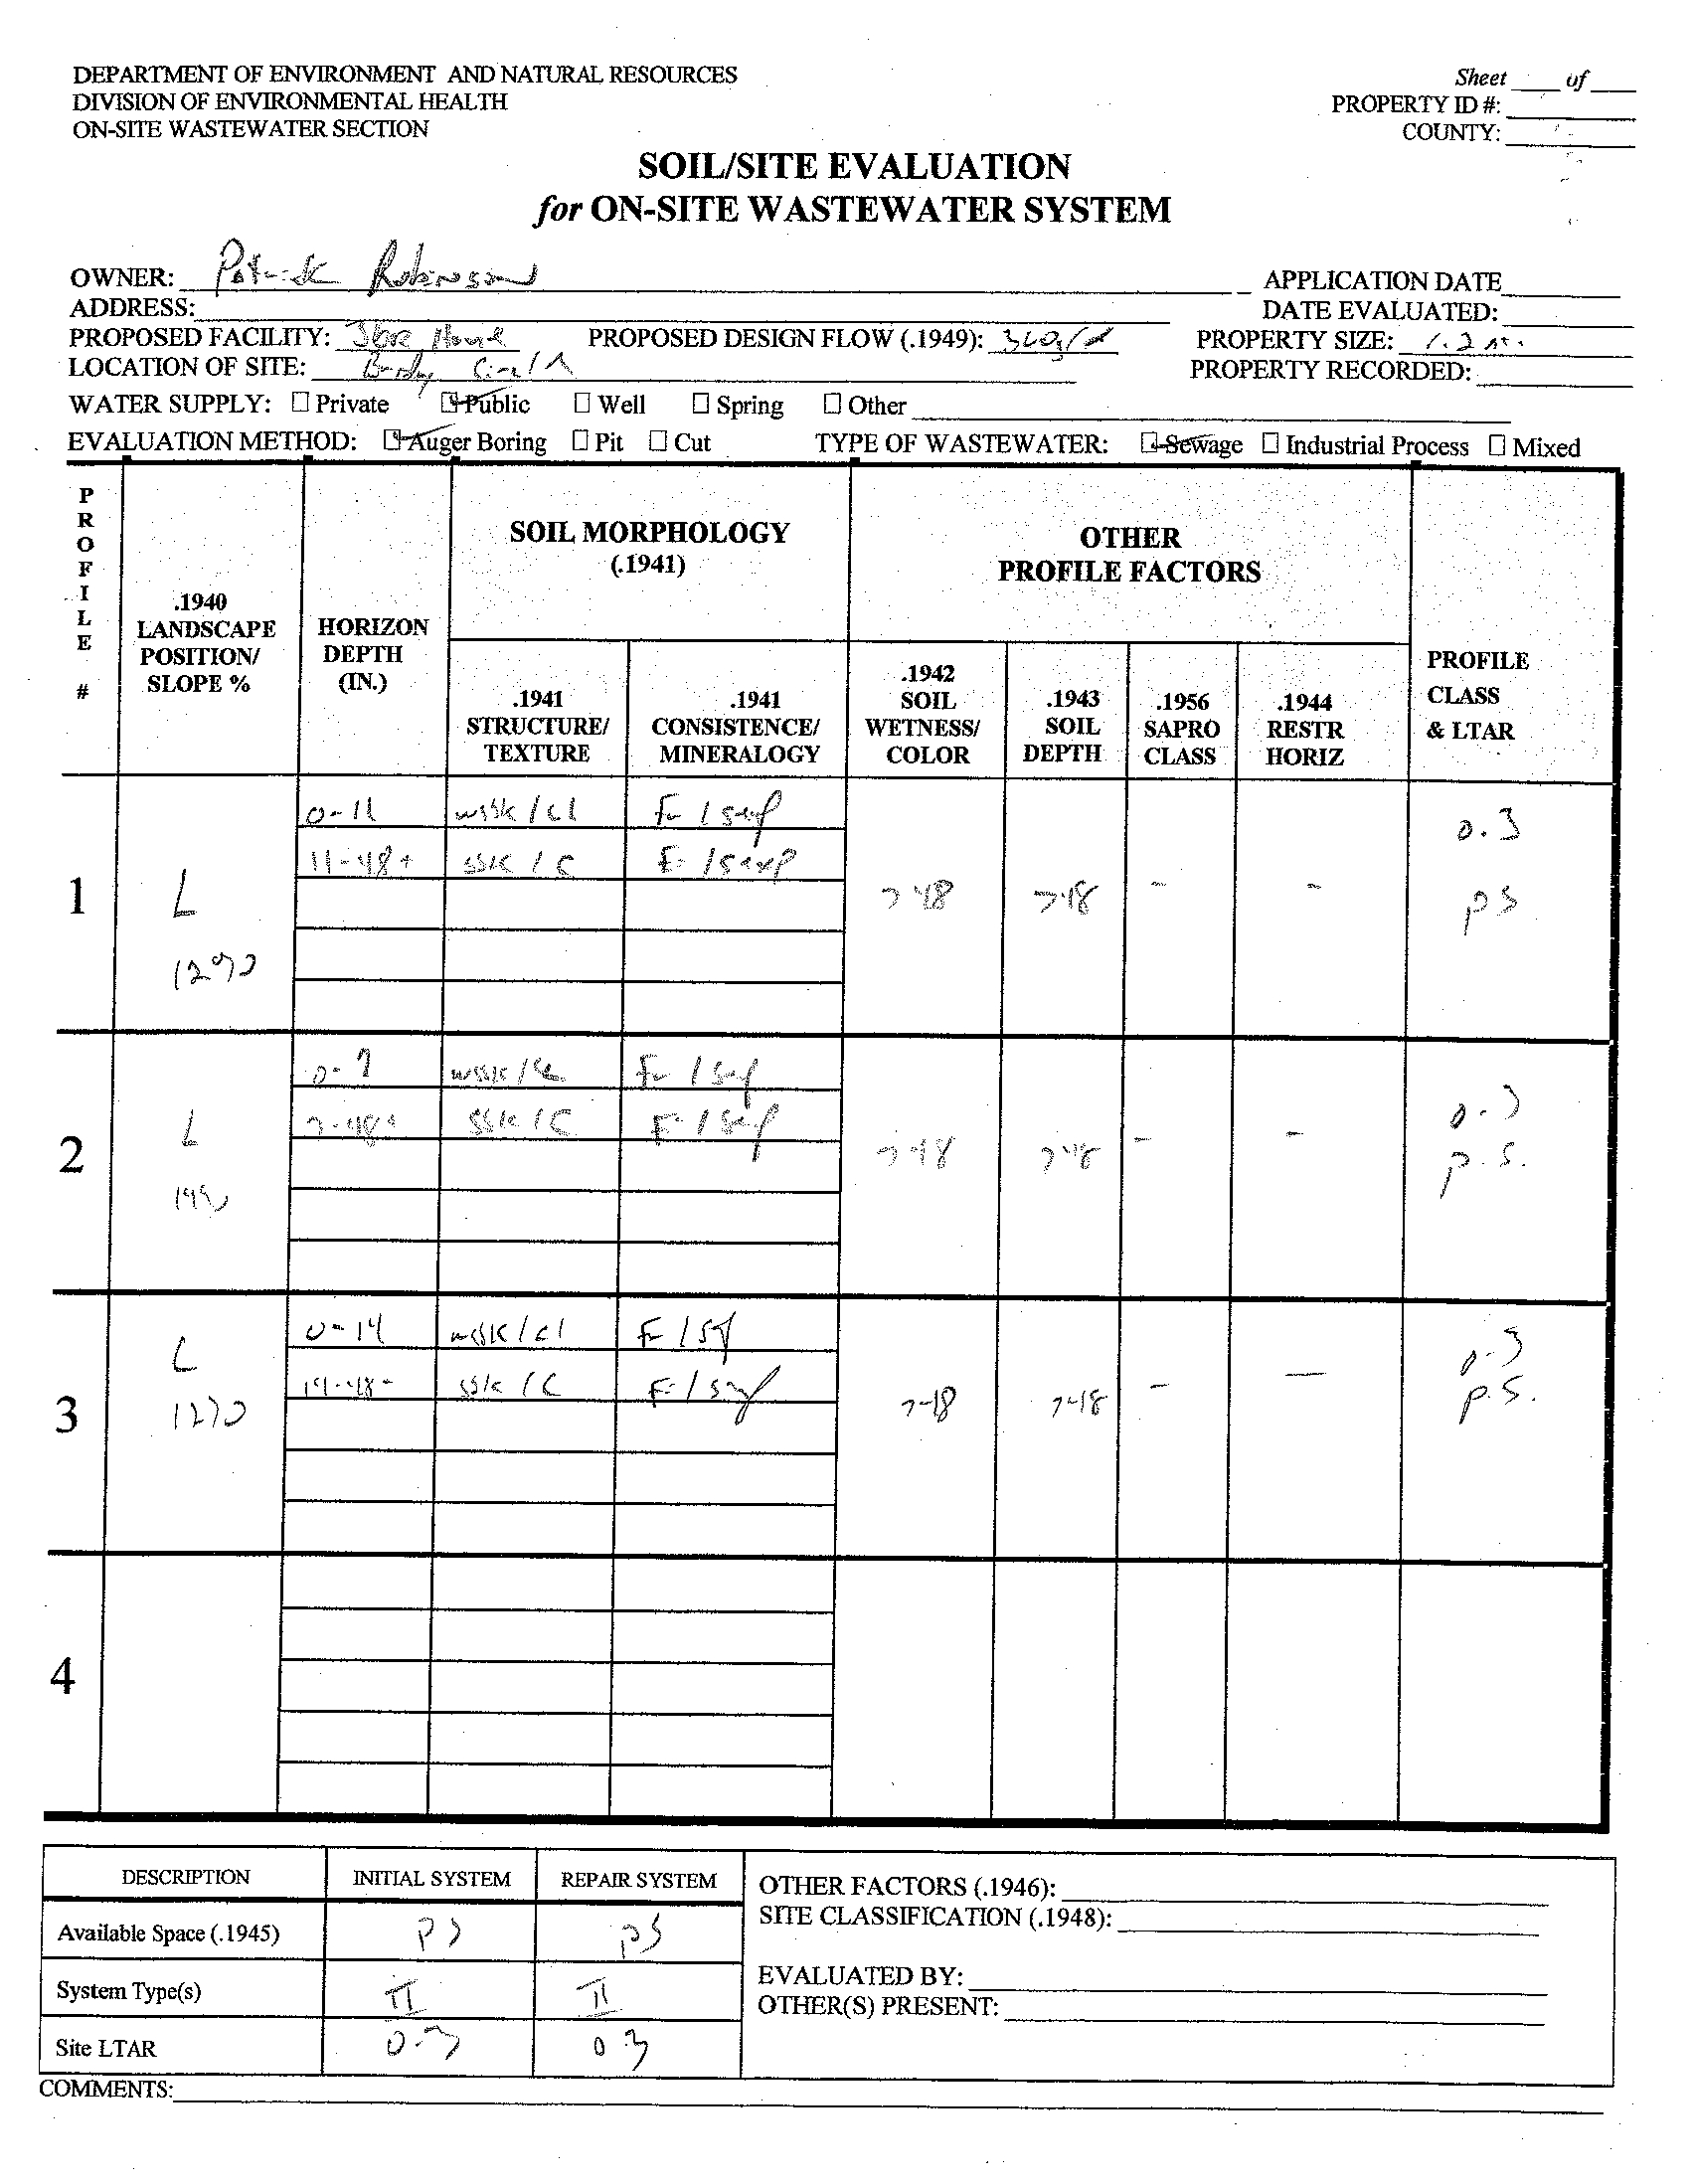 DEPARTMENT OF ENVIRONMENT AND NATURAL RESOURCES
DIVISION OF ENVIRONMENTAL HEALTH
ON-SITE WASTEWATER SECTION
Sheet ___ of ___
PROPERTY ID #:
COUNTY:
SOIL/SITE EVALUATION
for ON-SITE WASTEWATER SYSTEM
OWNER: Patrick Robinson
APPLICATION DATE
ADDRESS:
DATE EVALUATED:
PROPOSED FACILITY: House PROPOSED DESIGN FLOW (.1949): PROPERTY SIZE: 1.2
LOCATION OF SITE: PROPERTY RECORDED:
WATER SUPPLY: ☐ Private ☑ Public ☐ Well ☐ Spring ☐ Other
EVALUATION METHOD: ☑ Auger Boring ☐ Pit ☐ Cut TYPE OF WASTEWATER: ☑ Sewage ☐ Industrial Process ☐ Mixed
PROFILE #
.1940 LANDSCAPE POSITION/ SLOPE %
HORIZON DEPTH (IN.)
SOIL MORPHOLOGY (.1941)
.1941 STRUCTURE/ TEXTURE
.1941 CONSISTENCE/ MINERALOGY
OTHER PROFILE FACTORS
.1942 SOIL WETNESS/ COLOR
.1943 SOIL DEPTH
.1956 SAPRO CLASS
.1944 RESTR HORIZ
PROFILE CLASS & LTAR
1 L 12%
0-11 wsbk/cl
11-48+ sbk/c
>48 >48 - - 0.3 PS
2 L
0-7 wsbk/
7-48+ sbk/c
>48 >48 - - 0.3 P.S.
3 L 12%
0-14 wsbk/cl
14-48+ sbk/c
>48 >48 - - 0.3 P.S.
4
DESCRIPTION INITIAL SYSTEM REPAIR SYSTEM
Available Space (.1945) PS PS
System Type(s) II II
Site LTAR 0.3 0.3
OTHER FACTORS (.1946):
SITE CLASSIFICATION (.1948):
EVALUATED BY:
OTHER(S) PRESENT:
COMMENTS: